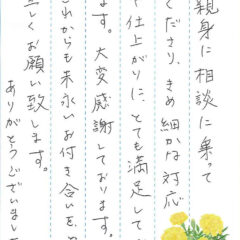 親身に相談に乗って
ください、きめ細かな対応
仕上がりに、とても満足して
ます。大変感謝しております。
これからも末永いお付き合いを、
しくお願い致します。
ありがとうございまし